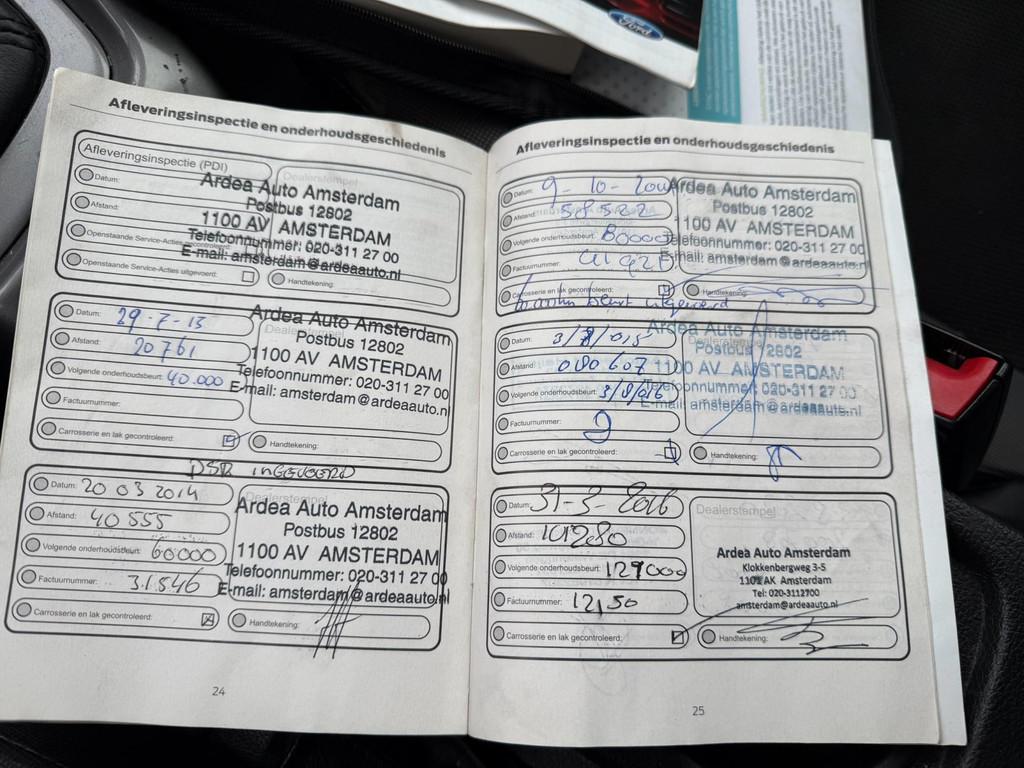 Ford
Afleveringsinspectie en onderhoudsgeschiedenis
Afleveringsinspectie (PDI)
Dealerstempel
Datum:
Afstand:
Openstaande Service-Acties gecontroleerd:
Openstaande Service-Acties uitgevoerd:
Handtekening:
Ardea Auto Amsterdam
Postbus 12802
1100 AV AMSTERDAM
Telefoonnummer: 020-311 27 00
E-mail: amsterdam@ardeaauto.nl
Datum: 29-7-13
Afstand: 20761
Volgende onderhoudsbeurt: 40.000
Factuurnummer:
Carrosserie en lak gecontroleerd:
Handtekening:
Dealerstempel
Ardea Auto Amsterdam
Postbus 12802
1100 AV AMSTERDAM
Telefoonnummer: 020-311 27 00
E-mail: amsterdam@ardeaauto.nl
Datum: 20 03 2014
Afstand: 40555
Volgende onderhoudsbeurt: 60000
Factuurnummer: 31.546
Carrosserie en lak gecontroleerd:
Handtekening:
Dealerstempel
Ardea Auto Amsterdam
Postbus 12802
1100 AV AMSTERDAM
Telefoonnummer: 020-311 27 00
E-mail: amsterdam@ardeaauto.nl
24
Afleveringsinspectie en onderhoudsgeschiedenis
Datum: 9-10-
Afstand: 58522
Volgende onderhoudsbeurt: 80000
Factuurnummer:
Carrosserie en lak gecontroleerd:
Handtekening:
Ardea Auto Amsterdam
Postbus 12802
1100 AV AMSTERDAM
Telefoonnummer: 020-311 27 00
E-mail: amsterdam@ardeaauto.nl
beurt uitgevoerd
Datum:
Afstand: 080607
Volgende onderhoudsbeurt: 3/8/016
Factuurnummer:
Carrosserie en lak gecontroleerd:
Handtekening:
Ardea Auto Amsterdam
Postbus 12802
1100 AV AMSTERDAM
Telefoonnummer: 020-311 27 00
E-mail: amsterdam@ardeaauto.nl
Datum: 31-3-2016
Afstand: 101280
Volgende onderhoudsbeurt: 121000
Factuurnummer: 12150
Carrosserie en lak gecontroleerd:
Handtekening:
Dealerstempel
Ardea Auto Amsterdam
Klokkenbergweg 3-5
1101 AK Amsterdam
Tel: 020-3112700
amsterdam@ardeaauto.nl
25